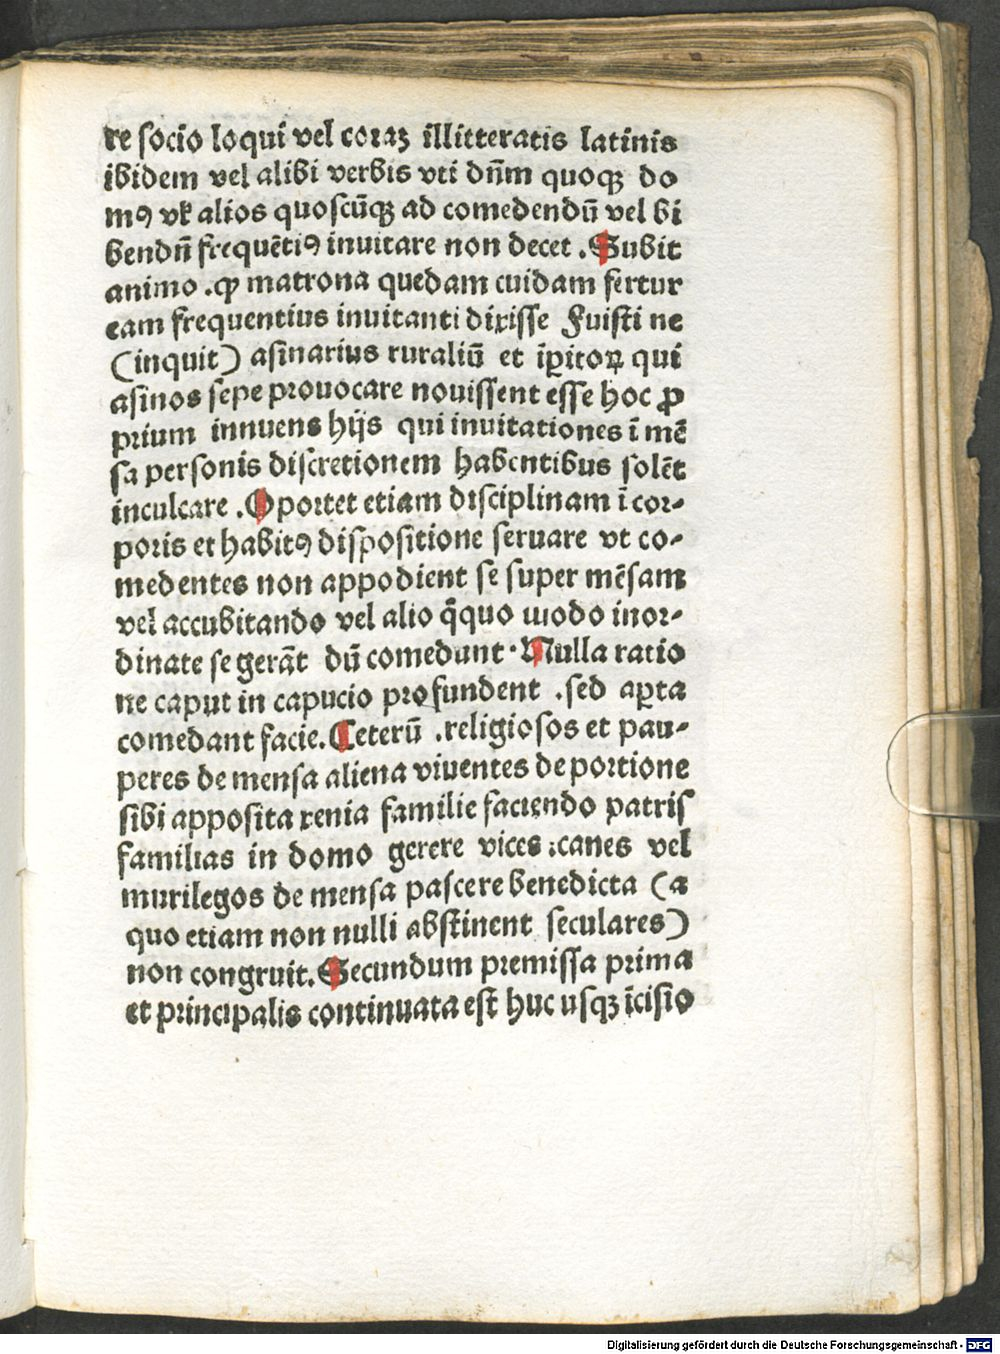 re socio loqui vel coraꝫ illitteratis latinis
ibidem vel alibi verbis vti dn̄m quoqꝫ do
mꝯ vł alios quoscūqꝫ ad comedendū vel bi
bendū frequētiꝯ inuitare non decet .Subit
animo .ꝙ matrona quedam cuidam fertur
eam frequentius inuitanti dixisse Fuisti ne
(inquit) asinarius ruraliū et īꝑitoꝝ qui
asinos sepe prouocare nouissent esse hoc ꝓ
prium innuens hijs qui inuitationes ī mē
sa personis discretionem habentibus solēt
inculcare .Oportet etiam disciplinam ī cor-
poris et habitꝯ dispositione seruare vt co-
medentes non appodient se super mēsam
vel accubitando vel alio q̄quo modo inor-
dinate se gerāt dū comedunt. Nulla ratio
ne caput in capucio profundent .sed aꝑta
comedant facie. Ceterū .religiosos et pau-
peres de mensa aliena viuentes de portione
sibi apposita xenia familie faciendo patris
familias in domo gerere vices :canes vel
murilegos de mensa pascere benedicta (a
quo etiam non nulli abstinent seculares)
non congruit. Secundum premissa prima
et principalis continuata est huc usqꝫ īcisio
Digitalisierung gefördert durch die Deutsche Forschungsgemeinschaft - DFG